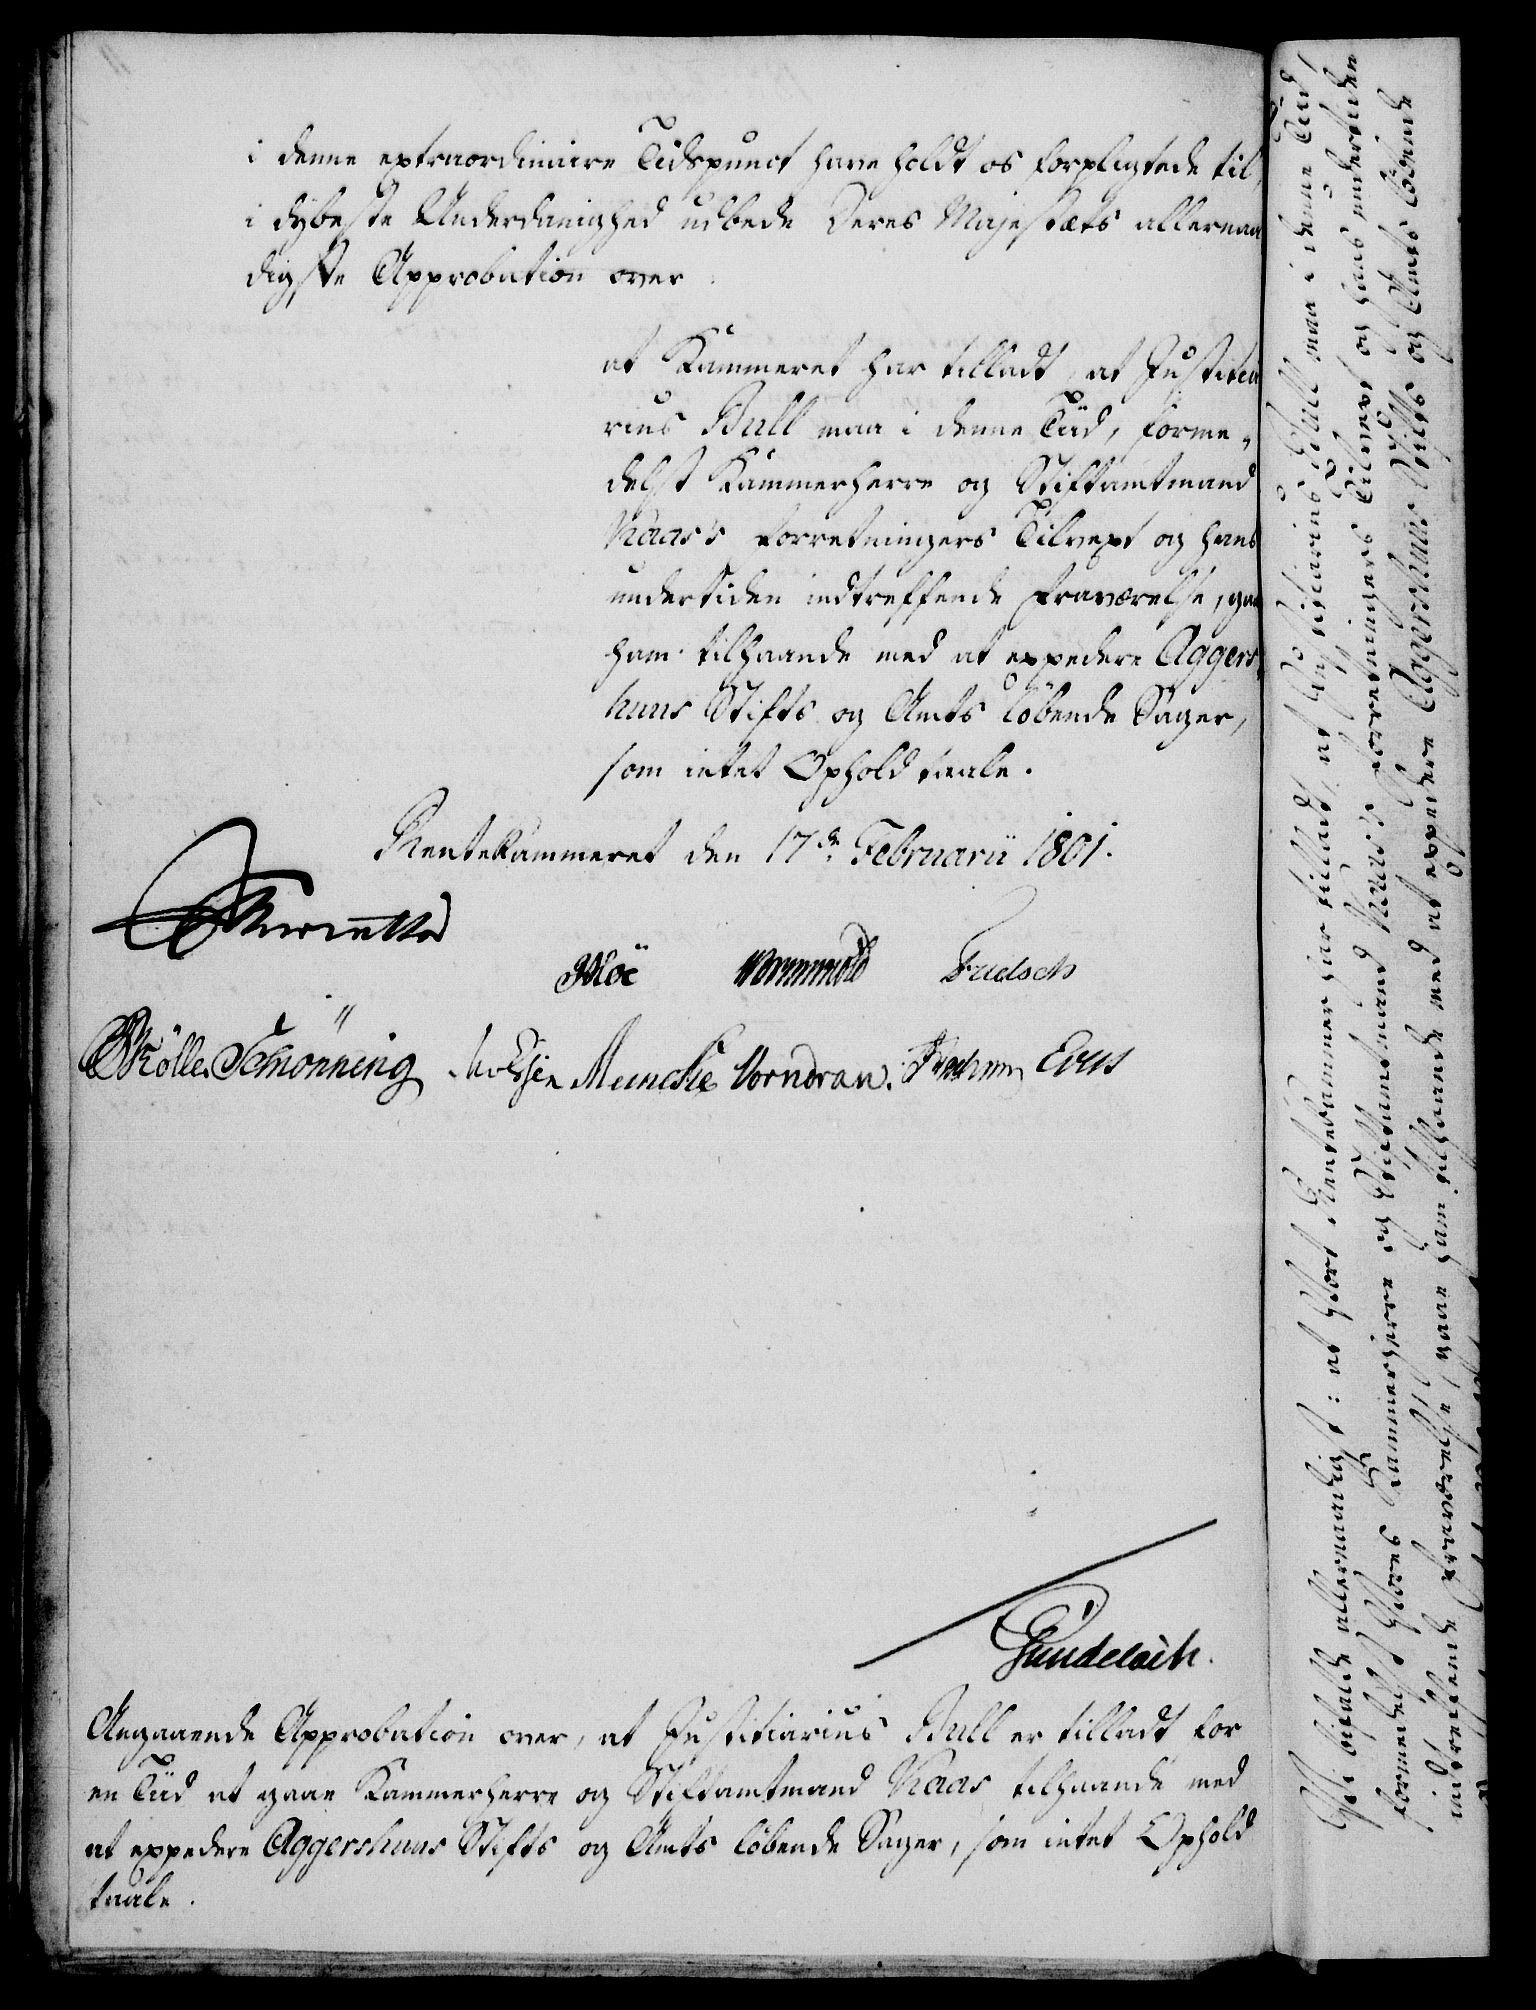 i denne extraordinaire Tidspunct have holdt os forpligtede til,
i dybeste Underdanighed udbede Deres Majestæts allernaa
digste Approbation over
at Kammeret har tilladt, at Justitia
rius Bull maa i denne Tiid, forme-
delst Kammerherre og Stiftamtmand
Kaas's Forretningers Tilvext og hans
undertiden indtreffende Fraværelse, gaa
ham tilhaande med at expedere Aggers,
huus Stifts og Amts løbende Sager,
som intet Ophold taale.
Rentekammeret den 17de Februarii 1801.
Reventlow
Moe Wormskiold Fridsch
Rølle Schønning Meincke Vorndran. Evers
Gundelach.
Angaaende Approbation over, at Justitiarius Bull er tilladt for
en Tiid at gaae Kammerherre og Stiftamtmand Kaas tilhaande med
at expedere Aggershuus Stifts og Amts løbende Sager, som intet Ophold
taale.
Vi bifalde allernaadigst: at Vort Rentekammer har tilladt, at Justitiarius Bull maa i denne Tiid,
formedelst Vores Kammerherre og Stiftamtmand Kaas's Forretningers Tilvext og hans undertiden
indtreffende Fraværelse, gaae ham tilhaande med at expedere Aggershuus Stifts og Amts løbende